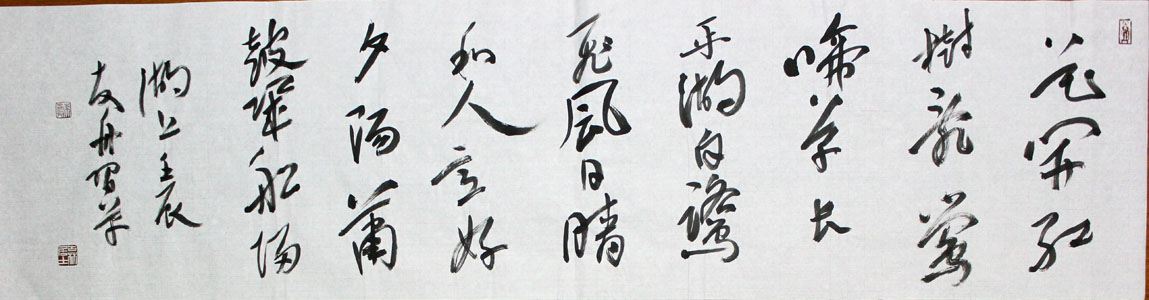 花開紅
樹亂鶯
啼草長
平湖白鷺
飛風日晴
和人意好
夕陽蕭
鼓幾船歸
湖上壬辰
友舟